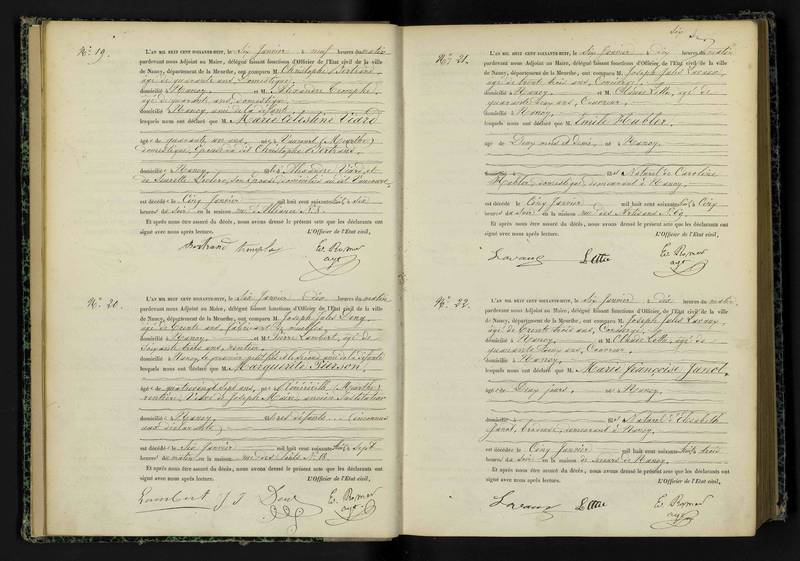 No. 19.
L'AN MIL HUIT CENT SOIXANTE-HUIT, le Six Janvier à neuf heures du matin
pardevant nous Adjoint au Maire, délégué faisant fonctions d'Officier de l'Etat civil de la ville
de Nancy, département de la Meurthe, ont comparu M. Christophe Bertrand,
âgé de quarante ans, domestique,
domicilié à Nancy, et M. Alexandre
âgé de quarante ans, domestique,
domicilié à Nancy, ami de la défunte
lesquels nous ont déclaré que M. Marie Célestine Viard
âgée de quarante un ans, née à (Meurthe)
domestique, épouse du dit Christophe Bertrand,
domiciliée à Nancy, fille d'Alexandre Viard et
de son épouse, domiciliés au dit
est décédée le Cinq Janvier mil huit cent soixante-huit, à Six
heures du soir en la maison rue d'Alliance No. 8.
Et après nous être assuré du décès, nous avons dressé le présent acte que les déclarants ont
signé avec nous après lecture. L'Officier de l'Etat civil,
Bertrand
No. 20.
L'AN MIL HUIT CENT SOIXANTE-HUIT, le Six Janvier à Dix heures du matin
pardevant nous Adjoint au Maire, délégué faisant fonctions d'Officier de l'Etat civil de la ville
de Nancy, département de la Meurthe, ont comparu M. Joseph Jules
âgé de trente ans, fabricant de
domicilié à Nancy, et M. Pierre Lambert, âgé de
soixante trois ans, rentier,
domicilié à Nancy, le premier petit fils et le second ami de la défunte
lesquels nous ont déclaré que M. Marguerite Pierson
âgée de quatrevingt sept ans, née à (Meurthe)
rentière, Veuve de Joseph ancien instituteur
domiciliée à Nancy, inconnus
aux déclarants
est décédée le Six Janvier mil huit cent soixante-huit, à Sept
heures du matin en la maison rue No. 18.
Et après nous être assuré du décès, nous avons dressé le présent acte que les déclarants ont
signé avec nous après lecture. L'Officier de l'Etat civil,
Lambert
No. 21.
L'AN MIL HUIT CENT SOIXANTE-HUIT, le Six Janvier à Dix heures du matin
pardevant nous Adjoint au Maire, délégué faisant fonctions d'Officier de l'Etat civil de la ville
de Nancy, département de la Meurthe, ont comparu M. Joseph Jules Lavaux,
âgé de trente trois ans, Concierge,
domicilié à Nancy, et M. Lette, âgé de
quarante cinq ans,
domicilié à Nancy,
lesquels nous ont déclaré que M. Emile Hubler,
âgé de Deux mois et demi, né à Nancy,
domicilié à fils Naturel de Caroline
Hubler, domestique, demeurant à Nancy,
est décédé le Cinq Janvier mil huit cent soixante-huit, à Cinq
heures du soir en la maison rue des Artisans No. 69.
Et après nous être assuré du décès, nous avons dressé le présent acte que les déclarants ont
signé avec nous après lecture. L'Officier de l'Etat civil,
Lavaux Lette
No. 22.
L'AN MIL HUIT CENT SOIXANTE-HUIT, le Six Janvier à Dix heures du matin
pardevant nous Adjoint au Maire, délégué faisant fonctions d'Officier de l'Etat civil de la ville
de Nancy, département de la Meurthe, ont comparu M. Joseph Jules Lavaux,
âgé de trente trois ans, Concierge,
domicilié à Nancy, et M. Lette, âgé de
quarante cinq ans,
domicilié à Nancy,
lesquels nous ont déclaré que M. Marie Françoise Janot,
âgée de Deux jours, née à Nancy,
domiciliée à fille Naturel d'Elisabeth
Janot, demeurant à Nancy,
est décédée le Cinq Janvier mil huit cent soixante-huit, à trois
heures du soir en la maison de Secours de Nancy.
Et après nous être assuré du décès, nous avons dressé le présent acte que les déclarants ont
signé avec nous après lecture. L'Officier de l'Etat civil,
Lavaux Lette